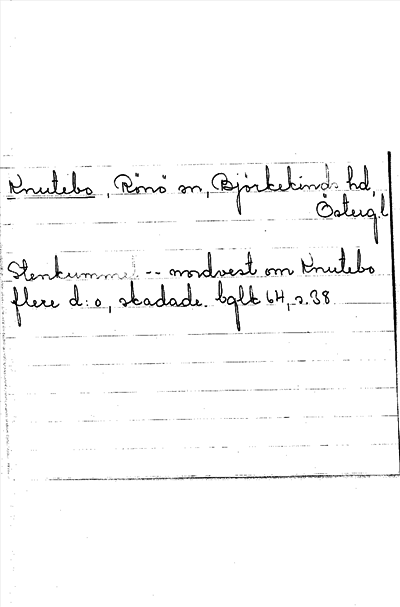 Knutebo, Rönö sn, Björkekinds hd,
Östergl
Stenkummel -- nordvest om Knutebo
flere d:o, skadade. bglk 64, s.38